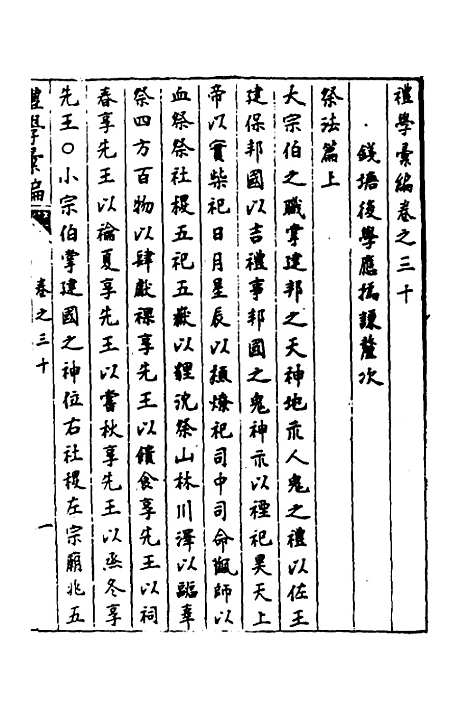 禮學彙編卷之三十
錢塘後學應撝謙釐次
祭法篇上
大宗伯之職掌建邦之天神地示人鬼之禮以佐王
建保邦國以吉禮事邦國之鬼神示以禋祀昊天上
帝以實柴祀日月星辰以槱燎祀司中司命飌師以
血祭祭社稷五祀五嶽以貍沈祭山林川澤以疈辜
祭四方百物以肆獻祼享先王以饋食享先王以祠
春享先王以禴夏享先王以嘗秋享先王以烝冬享
先王○小宗伯掌建國之神位右社稷左宗廟兆五
禮學彙編
卷之三十
一